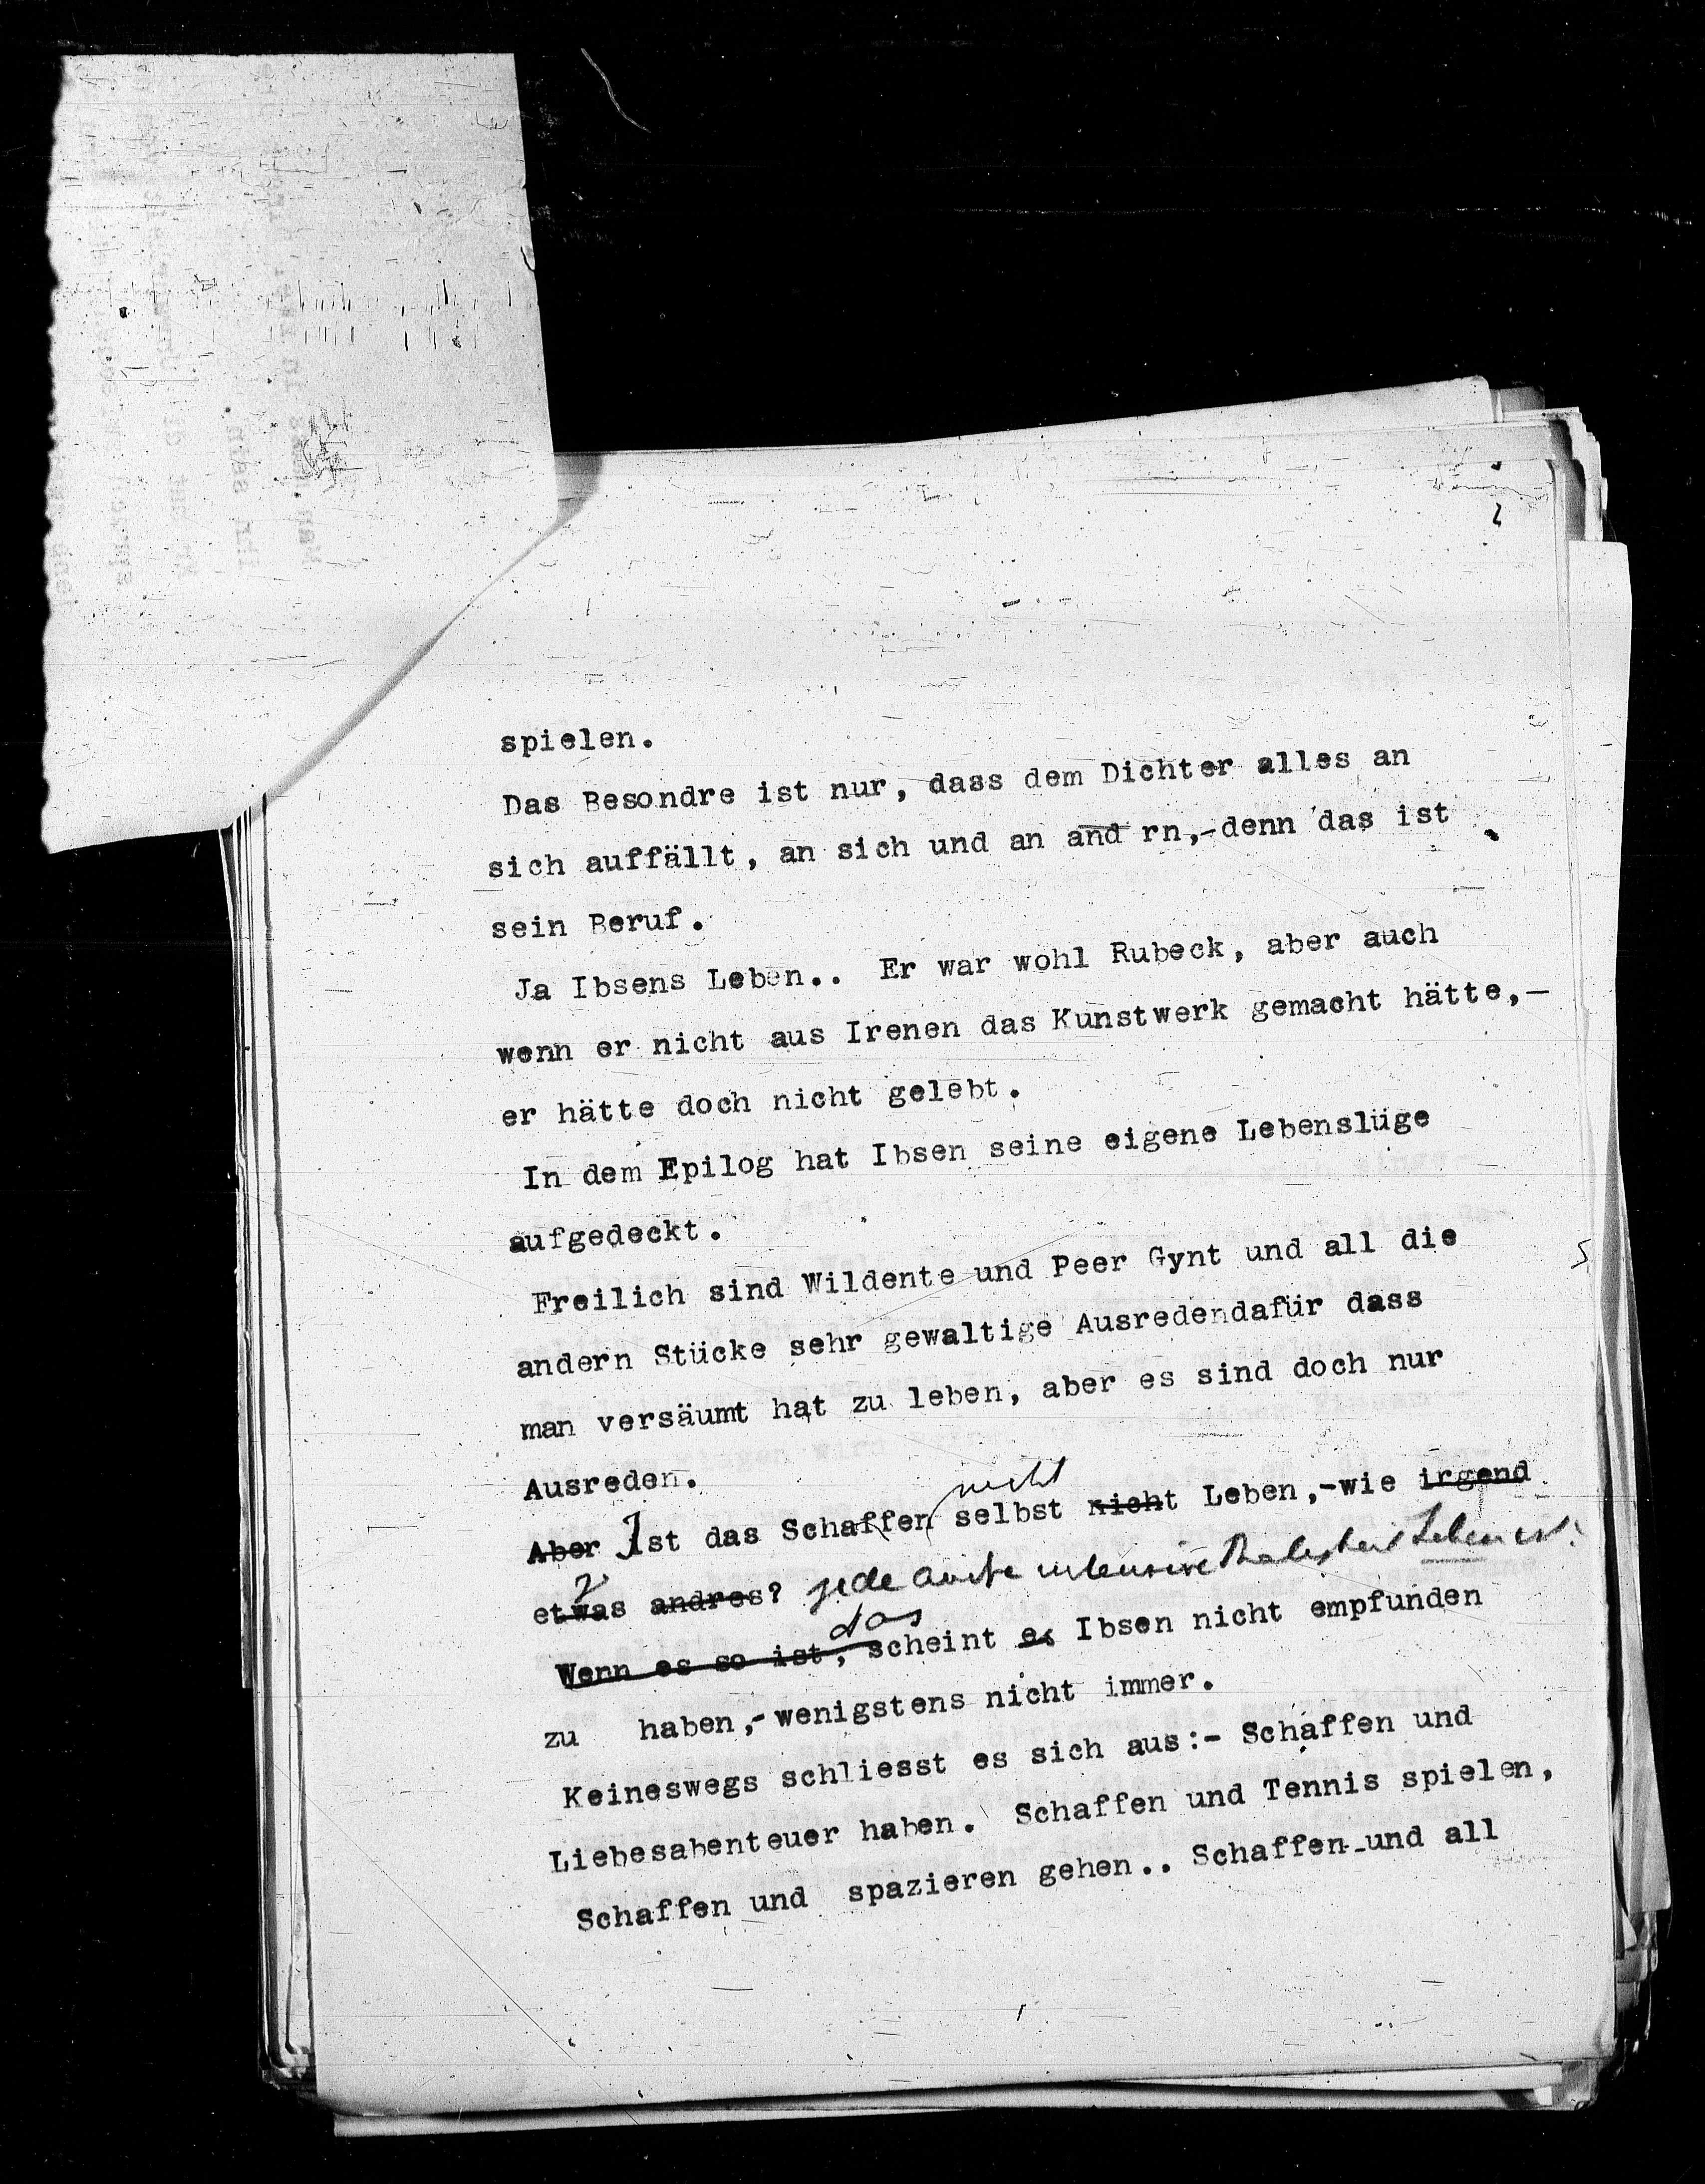 spielen.
Das Besondre ist nur, dass dem Dichter alles an
sich auffällt, an sich und an and rn,-denn das ist
sein Beruf.
Ja Ibsens Leben.. Er war wohl Rubeck, aber auch
wenn er nicht aus Irenen das Kunstwerk gemacht hätte,-
er hätte doch nicht gelebt.
In dem Epilog hat Ibsen seine eigene Lebenslüge
aufgedeckt.
Freilich sind Wildente und Peer Gynt und all die
andern Stücke sehr gewaltige Ausredendafür dass
man versäumt hat zu leben, aber es sind doch nur
Ausreden.
nicht
Aber Ist das Schaffen selbst nicht Leben,-wie irgend
etwas andres? jede andre intensive Thätigkeit Leben ist?
das
Wenn es so ist, scheint es Ibsen nicht empfunden
zu haben,-wenigstens nicht immer.
Keineswegs schliesst es sich aus:- Schaffen und
Liebesabenteuer haben. Schaffen und Tennis spielen,
Schaffen und spazieren gehen.. Schaffen und all